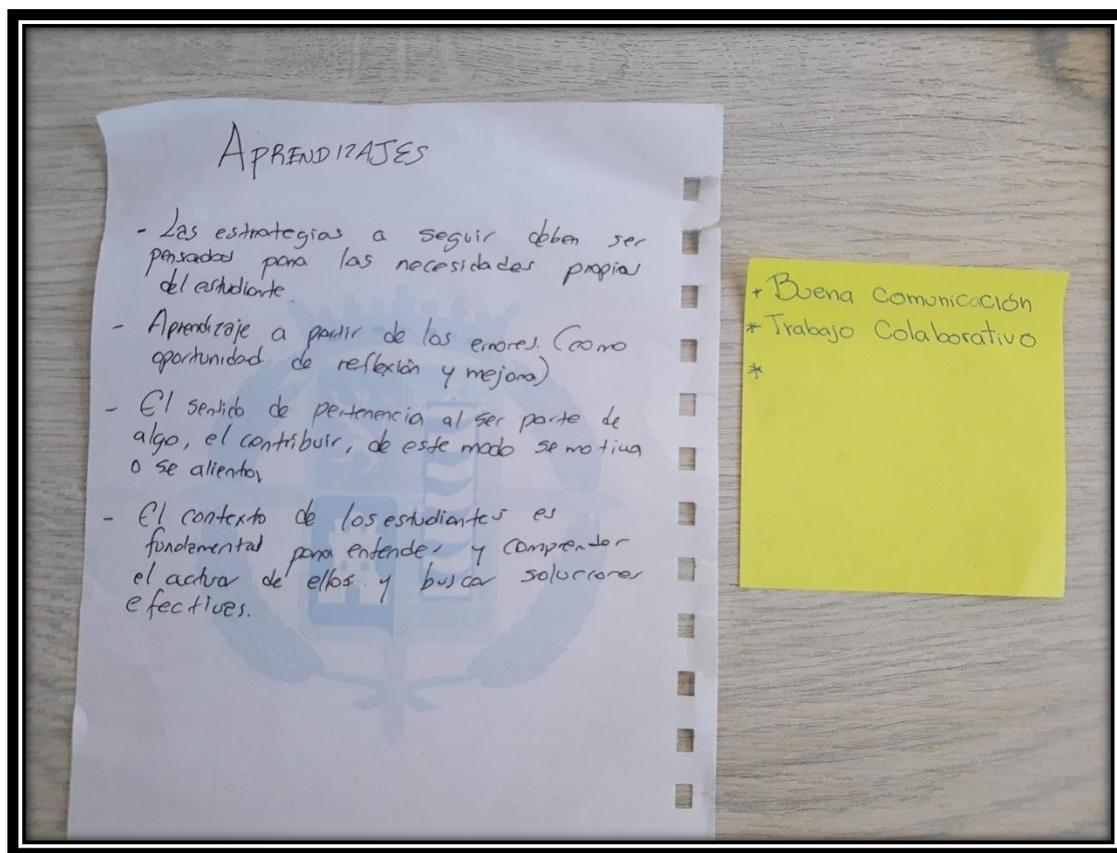 APRENDIZAJES
- Las estrategias a seguir deben ser
pensadas para las necesidades propias
del estudiante.
- Aprendizaje a partir de los errores. (como
oportunidad de reflexión y mejora)
- El sentido de pertenencia al ser parte de
algo, el contribuir, de este modo se motiva
o se alienta,
- El contexto de los estudiantes es
fundamental para entender y comprender
el actuar de ellos y buscar soluciones
efectivas.
* Buena Comunicación
* Trabajo Colaborativo
*